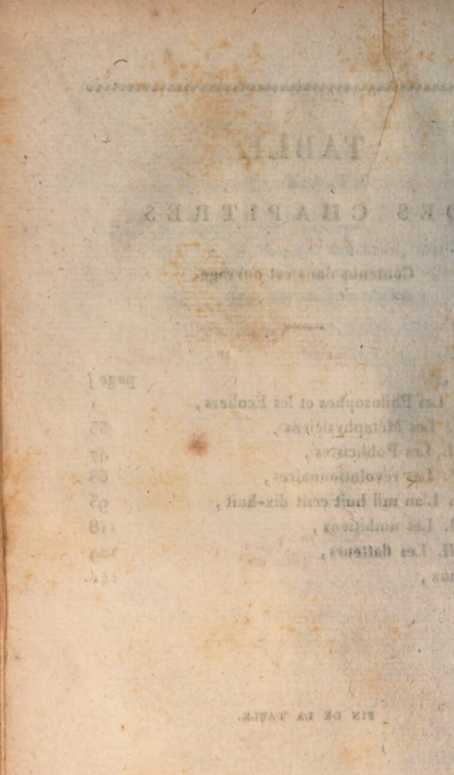 TABLE
DES CHAPITRES
Contenus dans cet ouvrage.
page
Les Philosophes et les Ecoliers,
Les Métaphysiciens,
Les Publicistes, 47
Les révolutionnaires,
L'an mil huit cent dix-huit, 95
Les ambitieux, 118
Les flatteurs,
FIN DE LA TABLE.